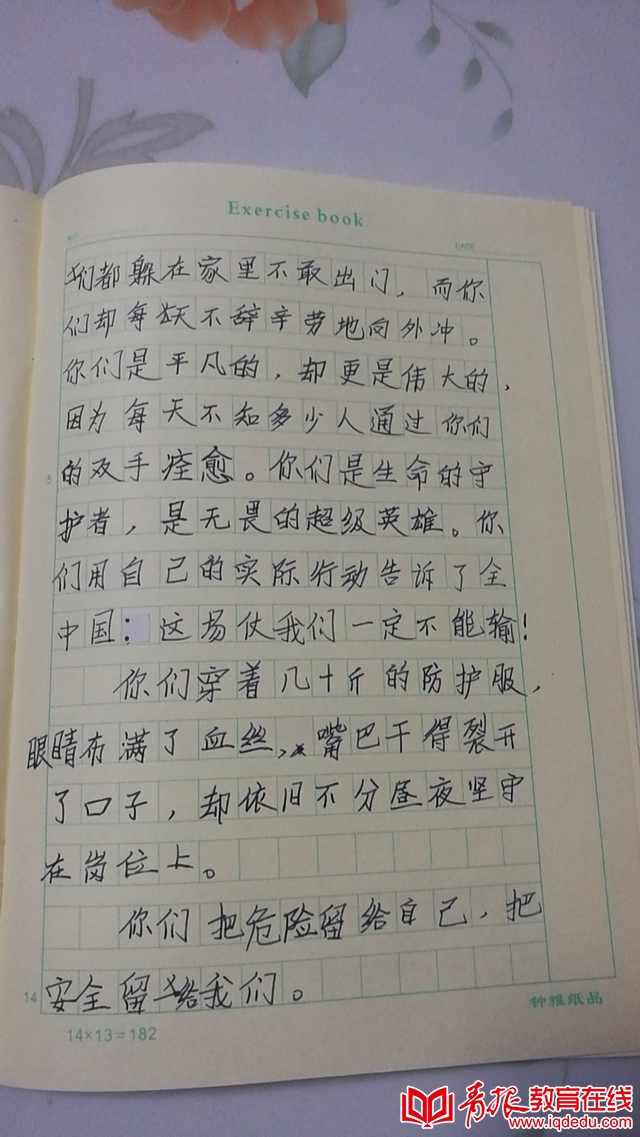 Exercise book
NO.
DATE
我们都躲在家里不敢出门，而你
们却每天不辞辛劳地向外冲。
你们是平凡的，却更是伟大的，
因为每天不知多少人通过你们
5
的双手痊愈。你们是生命的守
护者，是无畏的超级英雄。你
们用自己的实际行动告诉了全
中国：这场仗我们一定不能输！
你们穿着几十斤的防护服，
眼睛布满了血丝，嘴巴干得裂开
了口子，却依旧不分昼夜坚守
在岗位上。
你们把危险留给自己，把
14
安全留给我们。
钟雅纸品
14×13=182
青报教育在线
www.iqdedu.com